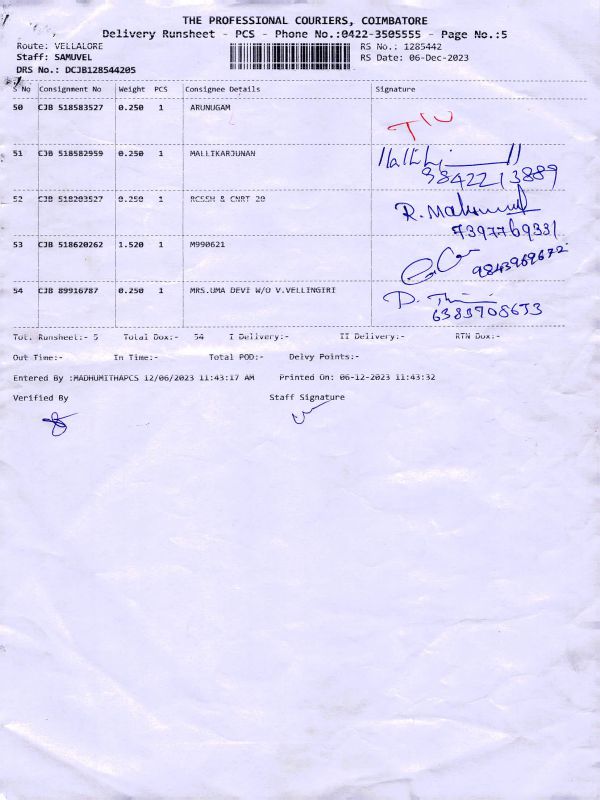 THE PROFESSIONAL COURIERS, COIMBATORE
Delivery Runsheet - PCS - Phone No.:0422-3505555 - Page No.:5
Route: VELLALORE RS No.: 1285442
Staff: SAMUVEL RS Date: 06-Dec-2023
DRS No.: DCJB128544205
S No Consignment No Weight PCS Consignee Details Signature
50 CJB 518583527 0.250 1 ARUNUGAM
51 CJB 518582959 0.250 1 MALLIKARJUNAN
3842213889
52 CJB 518203527 0.250 1 RCSSH & CNRT 20 R.
7397769331
53 CJB 518620262 1.520 1 M990621 9843969672
54 CJB 89916787 0.250 1 MRS.UMA DEVI W/O V.VELLINGIRI D.
6383908653
Tot. Runsheet:- 5 Total Dox:- 54 I Delivery:- II Delivery:- RTN Dox:-
Out Time:- In Time:- Total POD:- Delvy Points:-
Entered By :MADHUMITHAPCS 12/06/2023 11:43:17 AM Printed On: 06-12-2023 11:43:32
Verified By Staff Signature